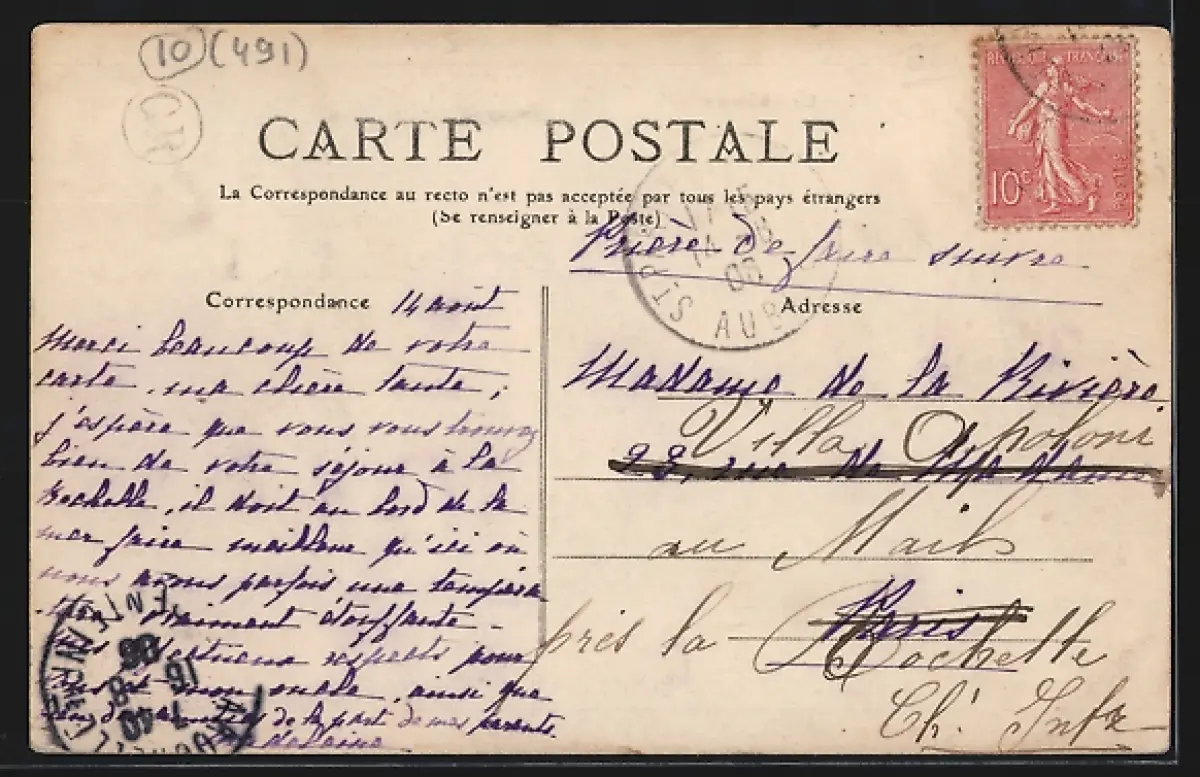 10 (491)
CR
CARTE POSTALE
La Correspondance au recto n'est pas acceptée par tous les pays étrangers
(Se renseigner à la Poste)
REPUBLIQUE FRANÇAISE
10c
POSTES
14
8
06
AUB
Prière de faire suivre
Correspondance
14 août
Merci beaucoup de votre
carte, ma chère tante ;
j'espère que vous vous trouvez
bien de votre séjour à La
Rochelle, il doit au bord de la
mer faire meilleur qu'ici où
nous avons parfois une tempéra
ture vraiment étouffante.
respects pour
mon oncle, ainsi que
de la part de mes parents.
Madeleine
Adresse
Madame de la Rivière
Villa
23, rue de
au Mail
Paris
près la Rochelle
Ch. Infre
16
8
06
7 40